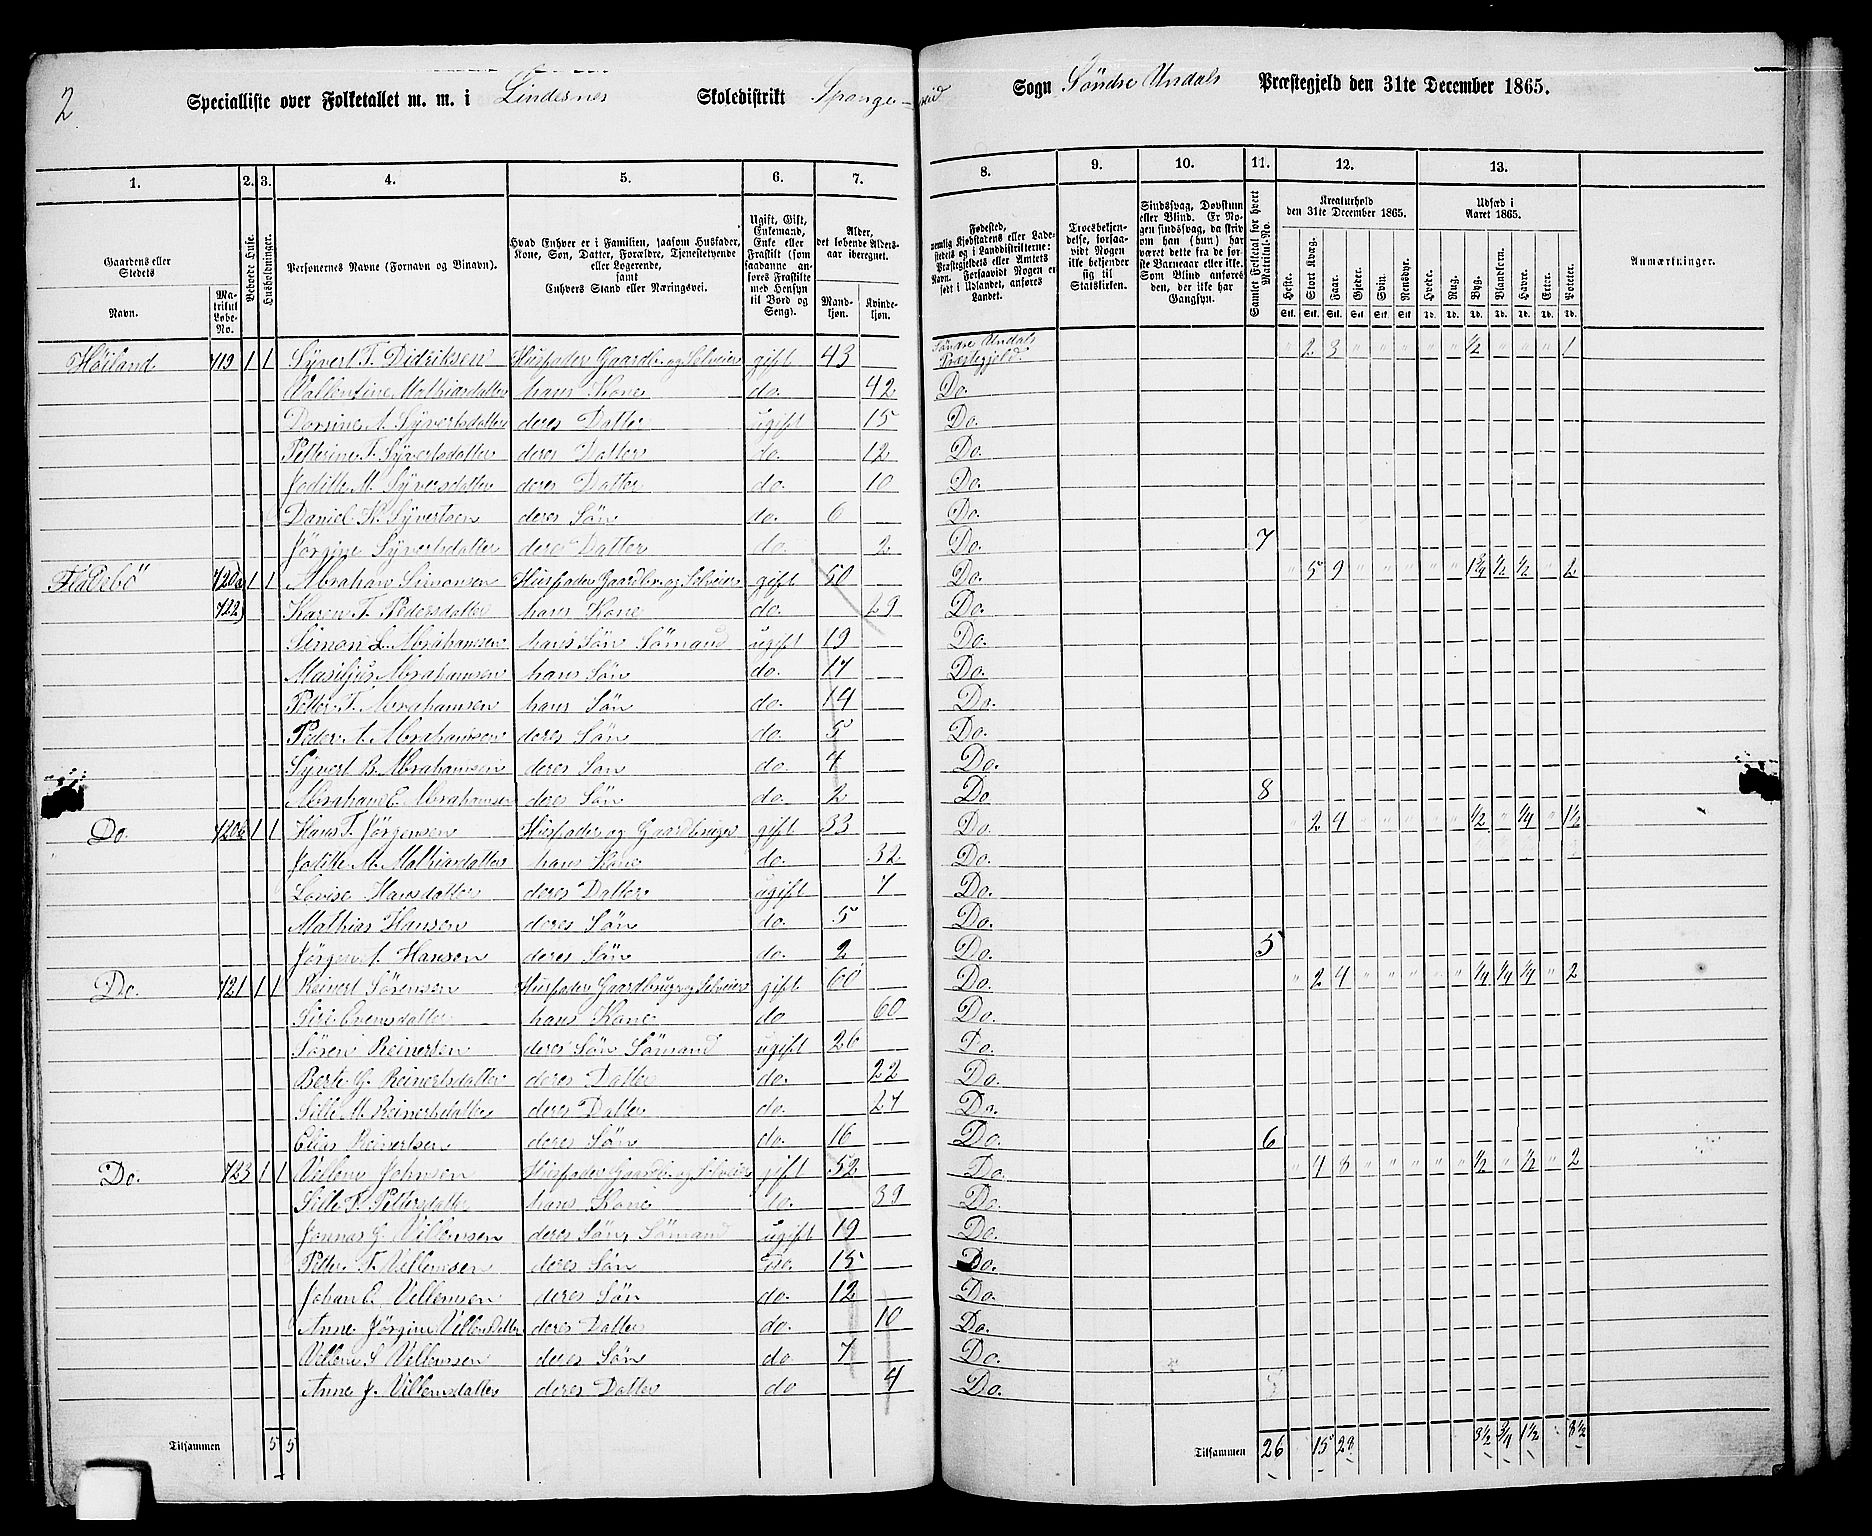 2
Specialliste over Folketallet m. m. i Lindesnes Skoledistrikt Sogn Søndre Undals Præstegjeld den 31te December 1865.
1. 2. 3. 4. 5. 6. 7. 8. 9. 10. 11. 12. 13.
Gaardens eller Stedets
Navn. Matrikul Løbe-No.
Beboede Huse.
Husholdninger.
Personernes Navne (Fornavn og Tilnavn).
Hvad Enhver er i Familien, saasom Husfader, Kone, Søn, Datter, Forældre, Tjenestetyende eller Logerende, samt Enhvers Stand eller Næringsvei.
Ugift, Gift, Enkemand, Enke eller Fraskilt (som saadanne anføres Fraskilte med Hensyn til Bord og Seng).
Alder, det løbende Alders-aar iberegnet.
Mandkjøn. Kvindekjøn.
Fødested,
Troesbekjendelse, forsaavidt Nogen ikke bekjender sig til Statskirken.
Sindssvag, Døvstum eller Blind.
Samlet Folketal for hvert Matrikul-No.
Kreaturhold den 31te December 1865.
Heste. Stort Kvæg. Faar. Gjeder. Svin. Rensdyr.
Udsæd i Aaret 1865.
Hvede. Rug. Byg. Blandkorn. Havre. Erter. Poteter.
Anmærkninger.
Høiland 719 1 1 Syvert T. Didriksen Husfader Gaardbr. og Selveier gift 43 Søndre Undals Præstegjeld. " 2 3 " " " " " ½ " " " 1
Vallentine Mathiasdatter hans Kone do. 42 Do.
Dorsine A. Syvertsdatter deres Datter ugift 15 Do.
Petterine T. Syvertsdatter deres Datter do. 12 Do.
Joditte M. Syversdatter deres Datter do. 10 Do.
Daniel K. Syvertsen deres Søn do. 6 Do.
Jørgine Syvertsdatter deres Datter do. 2 Do. 7
Flådebö 720a 1 1 Abraham Simonsen Husfader Gaardbr. og Selveier gift 50 Do. " 5 9 " " " " " 1¾ ½ ½ " 2
722 Karen T. Pedersdatter hans Kone do. 29 Do.
Simon L. Abrahamsen hans Søn Sømand ugift 19 Do.
Abrahamsen hans Søn do. 17 Do.
Petter T. Abrahamsen hans Søn do. 14 Do.
Peder A. Abrahamsen deres Søn do. 5 Do.
Syvert B. Abrahamsen deres Søn do. 4 Do.
Abraham E. Abrahamsen deres Søn do. 2 Do 8
Do. 720b 1 1 Hans T. Jørgensen Husfader og Gaardbruger gift 33 Do. " 2 4 " " " " " ½ " ¼ " 1½
Joditte M. Mathiasdatter hans Kone do. 32 Do.
Lovise Hansdatter deres Datter ugift 7 Do.
Mathias Hansen deres Søn do. 5 Do.
Jørgen A. Hansen deres Søn do. 2 Do. 5
Do. 721 1 1 Reinert Sørensen Husfader Gaardbrug. og Selveier gift 60 Do. " 2 4 " " " " " ¼ ¼ ¼ " 2
Siri Evensdatter hans Kone do 60 Do.
Søren Reinertsen deres Søn Sømand ugift 26 Do.
Berte G. Reinertsdatter deres Datter do. 22 Do.
Sille M. Reinertsdatter deres Datter do. 27 Do.
Elias Reinertsen deres Søn do. 16 Do. 6
Do. 723 1 1 Villem Johnsen Husfader Gaardbr. og Selveier gift 52 Do. " 4 8 " " " " " ½ " ½ " 2
Sille T. Pettersdatter hans Kone do. 39 Do.
Jonnas G. Villemsen deres Søn, Sømand ugift 19 Do.
Petter T. Villemsen deres Søn do. 15 Do.
Johan O. Villemsen deres Søn do. 12 Do.
Anne Jørgine Villemsdatter deres Datter do. 10 Do.
Villem S Villemsen deres Søn do 7 Do.
Anne J. Villemsdatter deres Datter do 4 Do.
Tilsammen 5 5 Tilsammen 26 15 28 3½ ¾ 1½ 8½